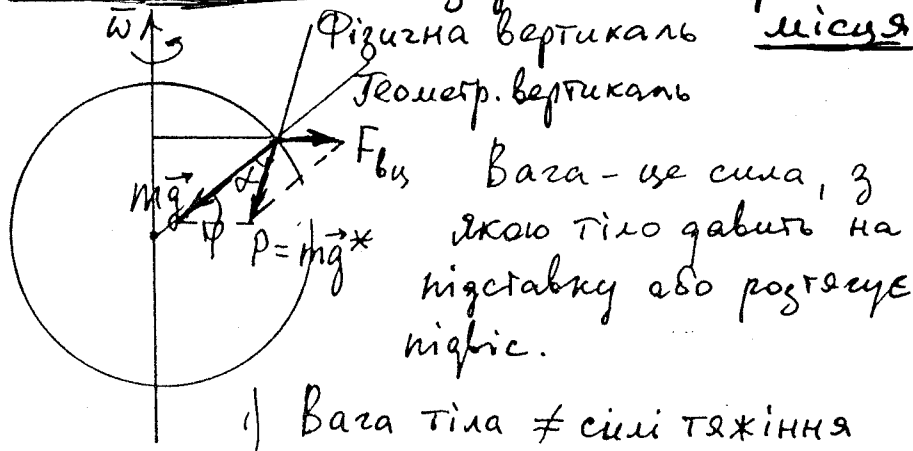 ω̄
Фізична вертикаль місця
Геометр. вертикаль
Fвц
mg⃗
α
φ
P = mg⃗*
Вага - це сила, з
якою тіло давить на
підставку або розтягує
підвіс.
1) Вага тіла ≠ силі тяжіння